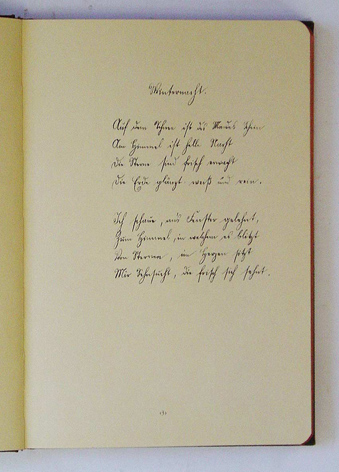 Winternacht.
Auf dem Schnee ist des Mondes Schein
Am Himmel ist helle Nacht
Die Sterne sind frisch erwacht
Die Erde glänzt weiß und rein.
Ich schaue, ans Fenster gelehnt,
Zum Himmel, in welchem es blitzt
Von Sternen, im Herzen sitzt
Mir Sehnsucht, die frisch sich sehnt.